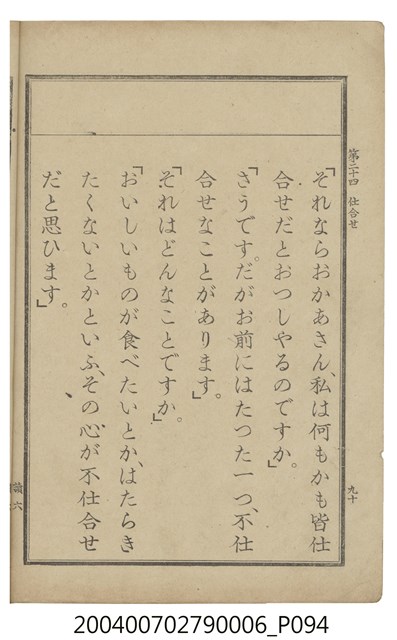 第二十四 仕合せ
「それならおかあさん、私は何もかも皆仕
合せだとおつしやるのですか。」
「さうです。だがお前にはたつた一つ、不仕
合せなことがあります。」
「それはどんなことですか。」
「おいしいものが食べたいとか、はたらき
たくないとかといふ、その心が不仕合せ
だと思ひます。」
九十
200400702790006_P094